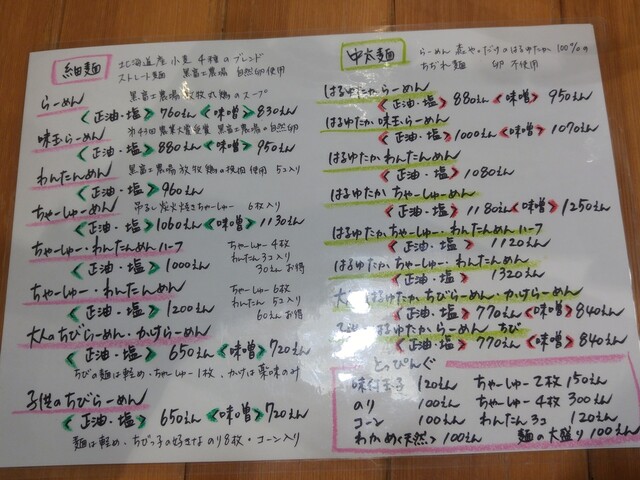 細麺 北海道産小麦4種のブレンド
ストレート麺 黒富士農場 自然卵使用
らーめん 黒富士農場放牧鶏のスープ
<正油・塩> 760えん <味噌> 830えん
味玉らーめん 黒富士農場の自然卵
<正油・塩> 880えん <味噌> 950えん
わんたんめん 黒富士農場放牧鶏の 使用 5コ入り
<正油・塩> 960えん
ちゃーしゅーめん 吊るし炭火焼きちゃーしゅー 6枚入り
<正油・塩> 1060えん <味噌> 1130えん
ちゃーしゅー・わんたんめんハーフ ちゃーしゅー4枚
わんたん3コ入り
<正油・塩> 1000えん 30えんお得
ちゃーしゅー・わんたんめん ちゃーしゅー6枚
わんたん 5コ入り
<正油・塩> 1200えん 60えんお得
大人のちびらーめん・かけらーめん
<正油・塩> 650えん <味噌> 720えん
ちびの麺は軽め・ちゃーしゅー1枚、かけは薬味のみ
子供のちびらーめん
<正油・塩> 650えん <味噌> 720えん
麺は軽め・ちびっ子の好きなのり8枚・コーン入り
中太麺 らーめん 森やだけのはるゆたか 100%の
ちぢれ麺 卵 不使用
はるゆたからーめん
<正油・塩> 880えん <味噌> 950えん
はるゆたか味玉らーめん
<正油・塩> 1000えん <味噌> 1070えん
はるゆたかわんたんめん
<正油・塩> 1080えん
はるゆたかちゃーしゅーめん
<正油・塩> 1180えん <味噌> 1250えん
はるゆたかちゃーしゅー・わんたんめんハーフ
<正油・塩> 1120えん
はるゆたかちゃーしゅー・わんたんめん
<正油・塩> 1320えん
大人 はるゆたかちびらーめん・かけらーめん
<正油・塩> 770えん <味噌> 840えん
はるゆたからーめん ちび
<正油・塩> 770えん <味噌> 840えん
とっぴんぐ
味付玉子 120えん ちゃーしゅー2枚 150えん
のり 100えん ちゃーしゅー4枚 300えん
コーン 100えん わんたん3コ 120えん
わかめ<天然> 100えん 麺の大盛り 100えん